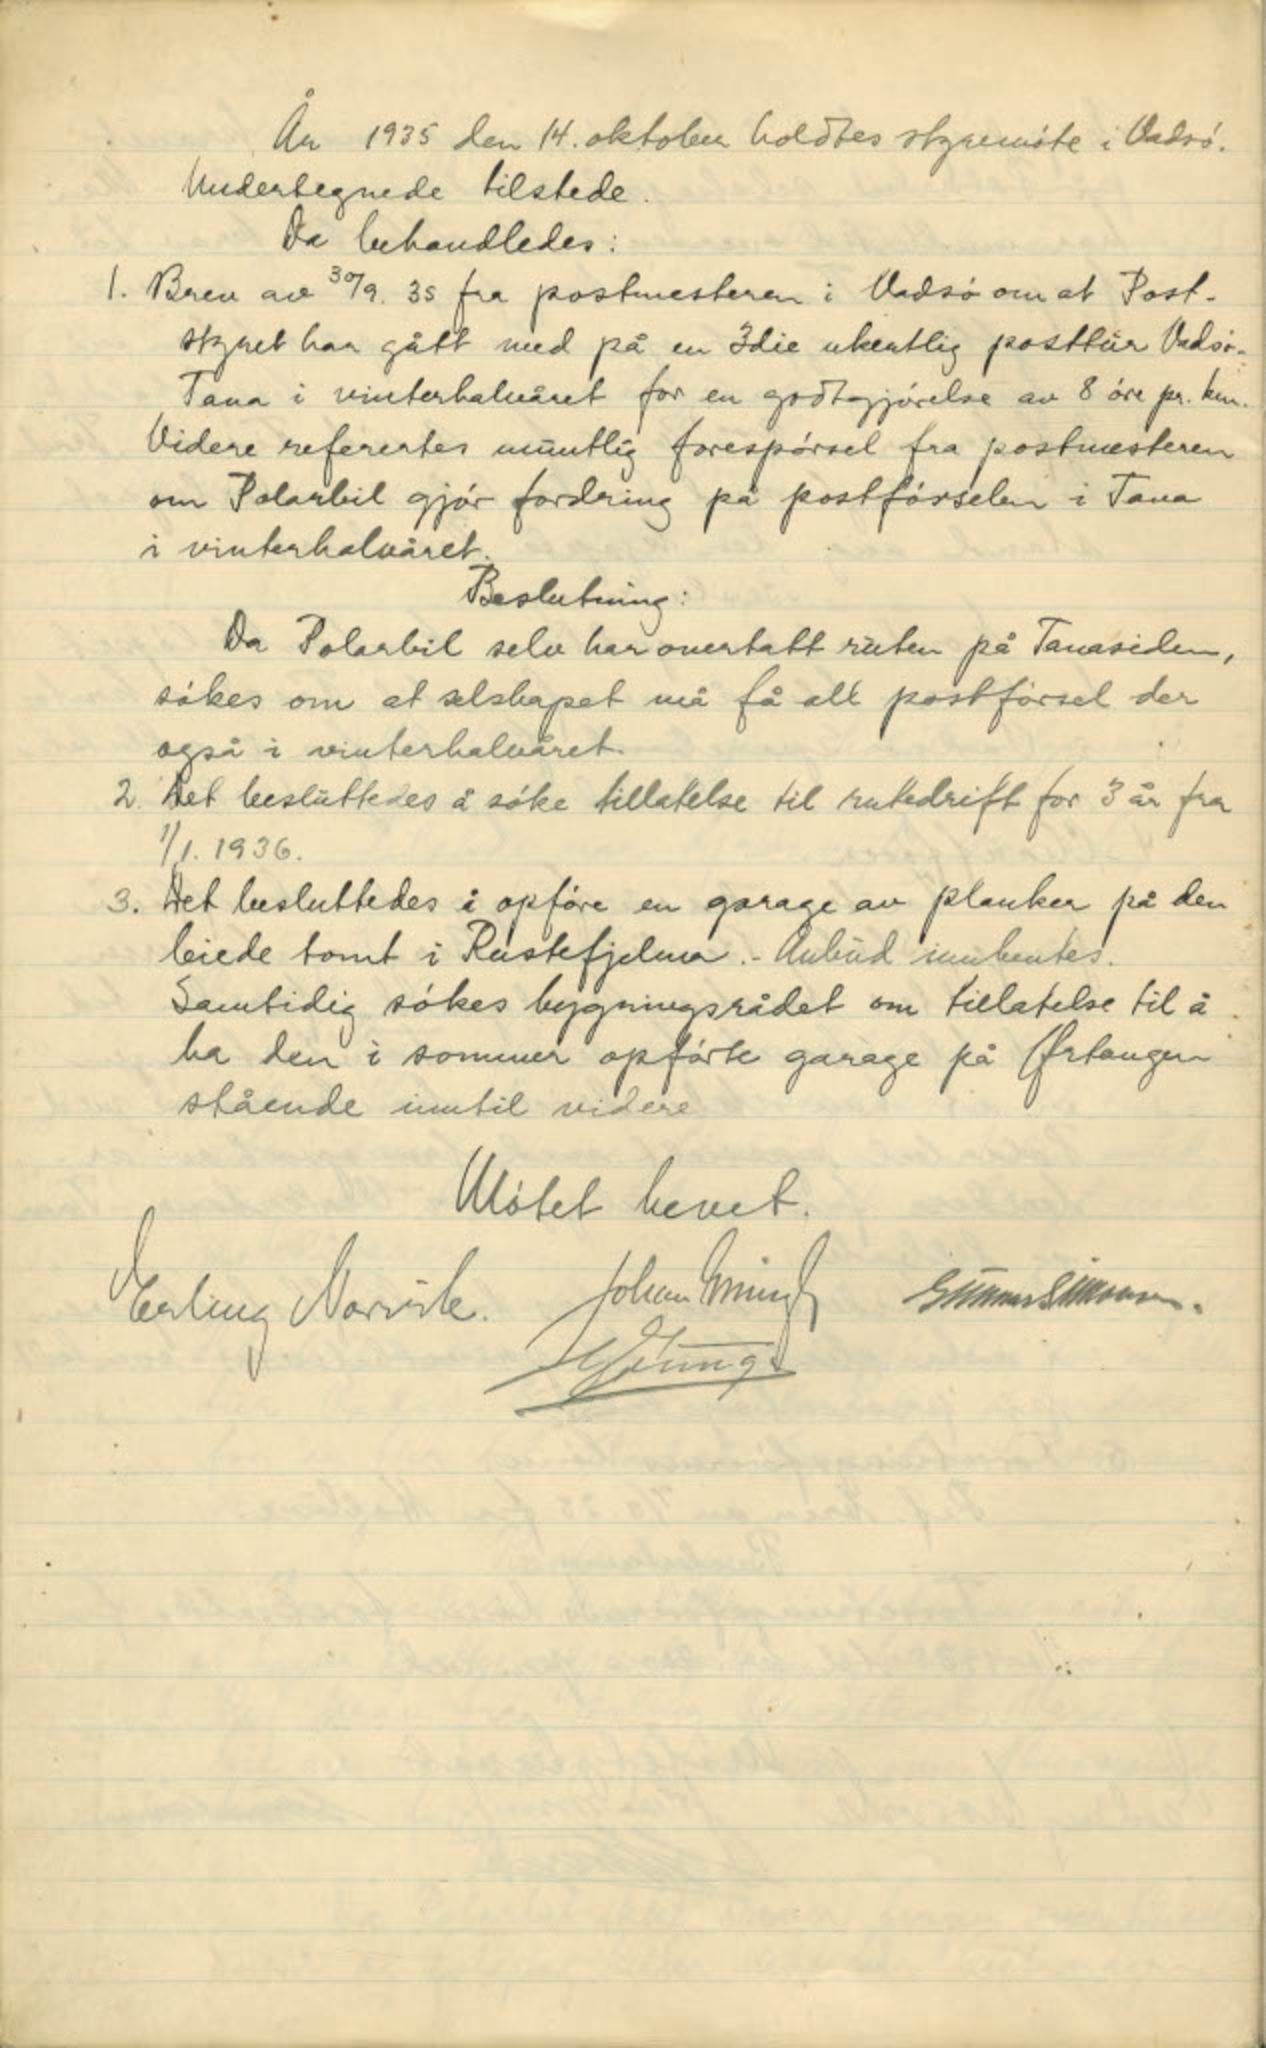 År 1935 den 14. oktober holdtes styremöte i Vadsö.
Undertegnede tilstede.
Da behandledes:
1. Brev av 30/9. 35 fra postmesteren i Vadsö om at Post-
styret har gått med på en 3die ukentlig posttur Vadsö-
Tana i vinterhalvåret for en godtgjörelse av 8 öre pr. km.
Videre referertes muntlig forespörsel fra postmesteren
om Polarbil gjör fordring på postförselen i Tana
i vinterhalvåret.
Beslutning:
Da Polarbil selv har overtatt ruten på Tanasiden,
sökes om at selskapet må få all postförsel der
også i vinterhalvåret.
2. Det besluttedes å söke tillatelse til rutedrift for 3 år fra
1/1. 1936.
3. Det besluttedes å opföre en garage av planker på den
leiede tomt i Rustefjelma.- Anbud innhentes.
Samtidig sökes bygningsrådet om tillatelse til å
ha den i sommer opförte garage på Ørtangen
stående inntil videre
Mötet hevet.
Erling Norvik. Johan Gunnar Simonsen.